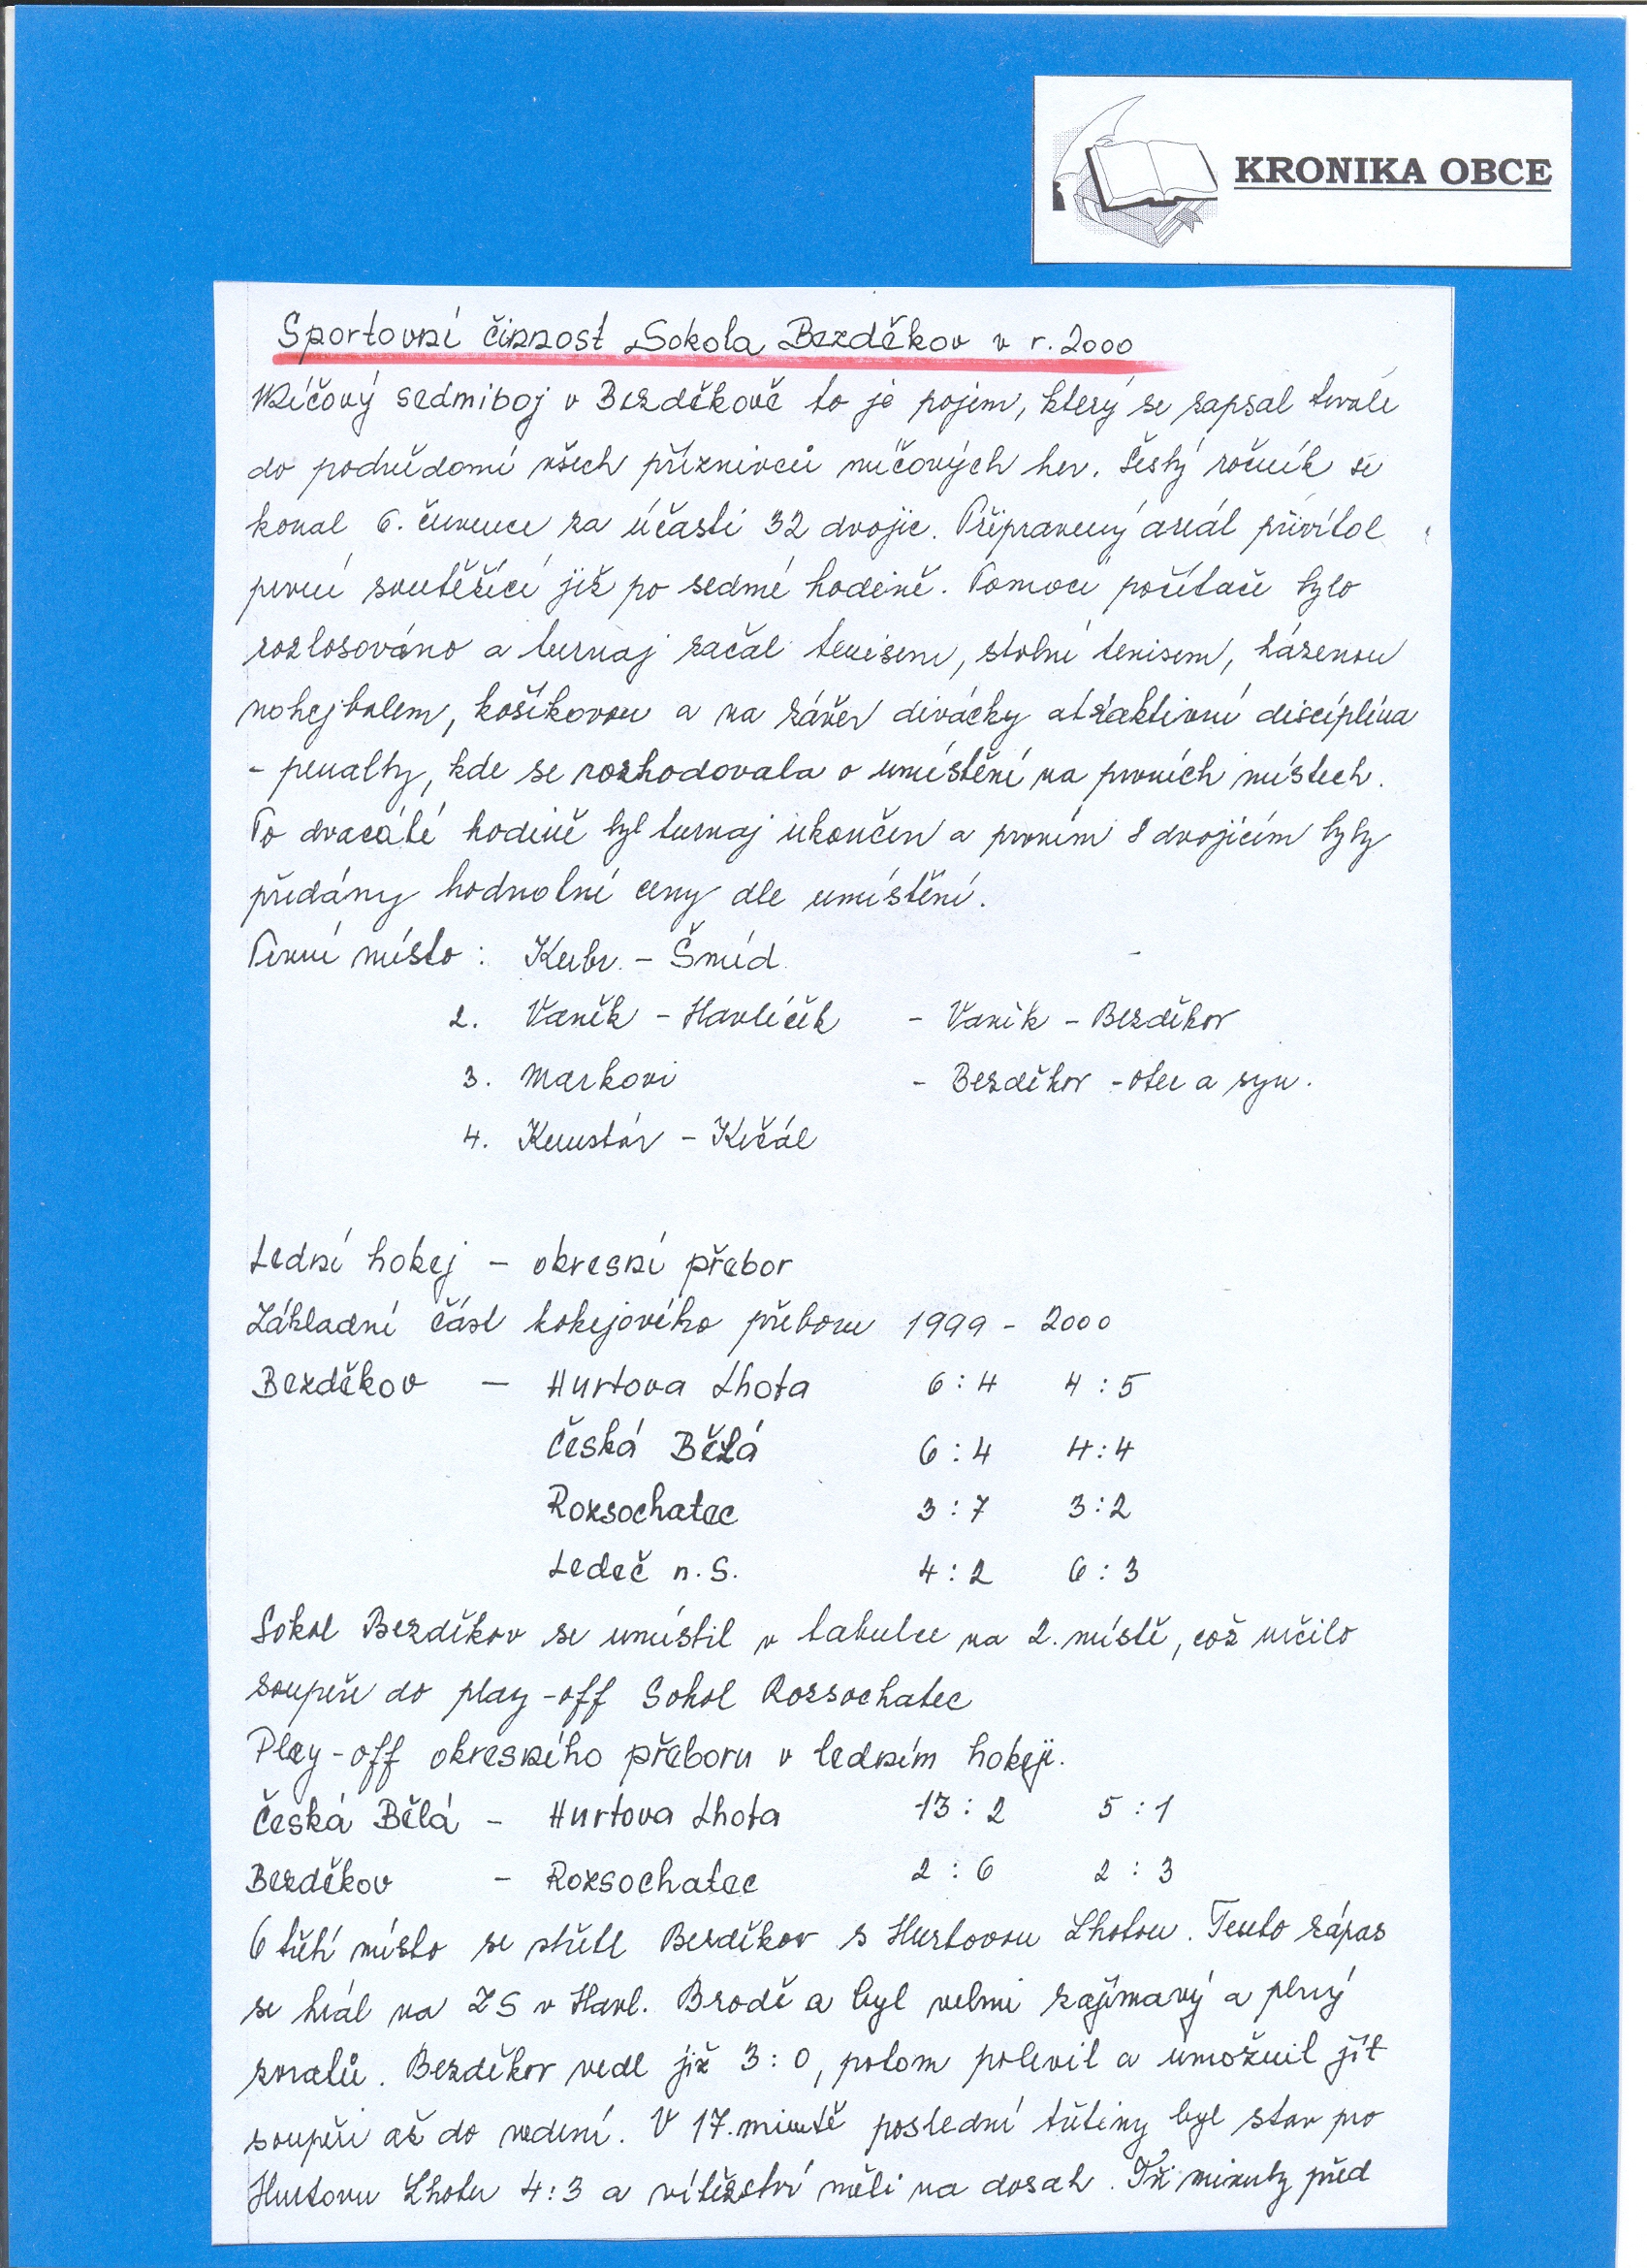 KRONIKA OBCE
Sportovní činnost Sokola Bezděkov v r. 2000
Míčový sedmiboj v Bezděkově to je pojem, který se zapsal trvale
do podvědomí všech příznivců míčových her. Šestý ročník se
konal 6. července za účasti 32 dvojic. Připravený areál přivítal
první soutěžící již po sedmé hodině. Pomocí počítače bylo
rozlosováno a turnaj začal tenisem, stolní tenisem, házenou
nohejbalem, košíkovou a na závěr divácky atraktivní disciplína
- penalty, kde se rozhodovala o umístění na prvních místech.
Po dvacáté hodině byl turnaj ukončen a prvním 8 dvojicím byly
předány hodnotné ceny dle umístění.
První místo : Kubr. - Šmíd
2. Vaněk - Havlíček - Vaněk - Bezděkov
3. Markovi - Bezděkov - otec a syn.
4. Kunstár - Krčál
Lední hokej - okresní přebor
Základní část hokejového přeboru 1999 - 2000
Bezděkov - Hurtova Lhota 6 : 4 4 : 5
Česká Bělá 6 : 4 4 : 4
Rozsochatec 3 : 7 3 : 2
Ledeč n. S. 4 : 2 6 : 3
Sokol Bezděkov se umístil v tabulce na 2. místě, což určilo
soupeře do play-off Sokol Rozsochatec
Play-off okresního přeboru v ledním hokeji.
Česká Bělá - Hurtova Lhota 13 : 2 5 : 1
Bezděkov - Rozsochatec 2 : 6 2 : 3
O třetí místo se střetl Bezděkov s Hurtovou Lhotou. Tento zápas
se hrál na ZS v Havl. Brodě a byl velmi zajímavý a plný
zvratů. Bezděkov vedl již 3 : 0, potom polevil a umožnil jít
soupeři až do vedení. V 17. minutě poslední třetiny byl stav pro
Hurtovu Lhotu 4:3 a vítězství měli na dosah. Tři minuty před